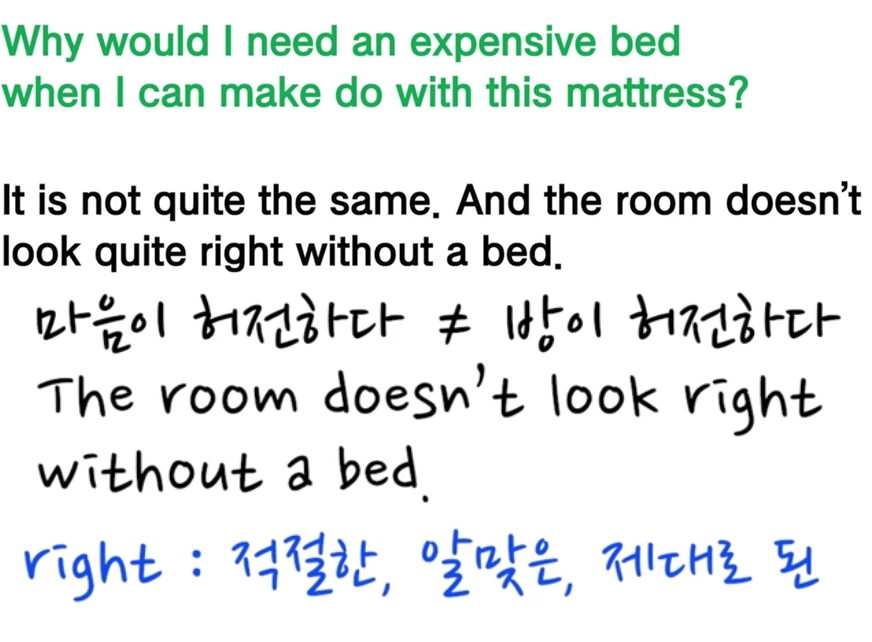 Why would I need an expensive bed
when I can make do with this mattress?
It is not quite the same. And the room doesn't
look quite right without a bed.
마음이 허전하다 ≠ 방이 허전하다
The room doesn't look right
without a bed.
right : 적절한, 알맞은, 제대로 된